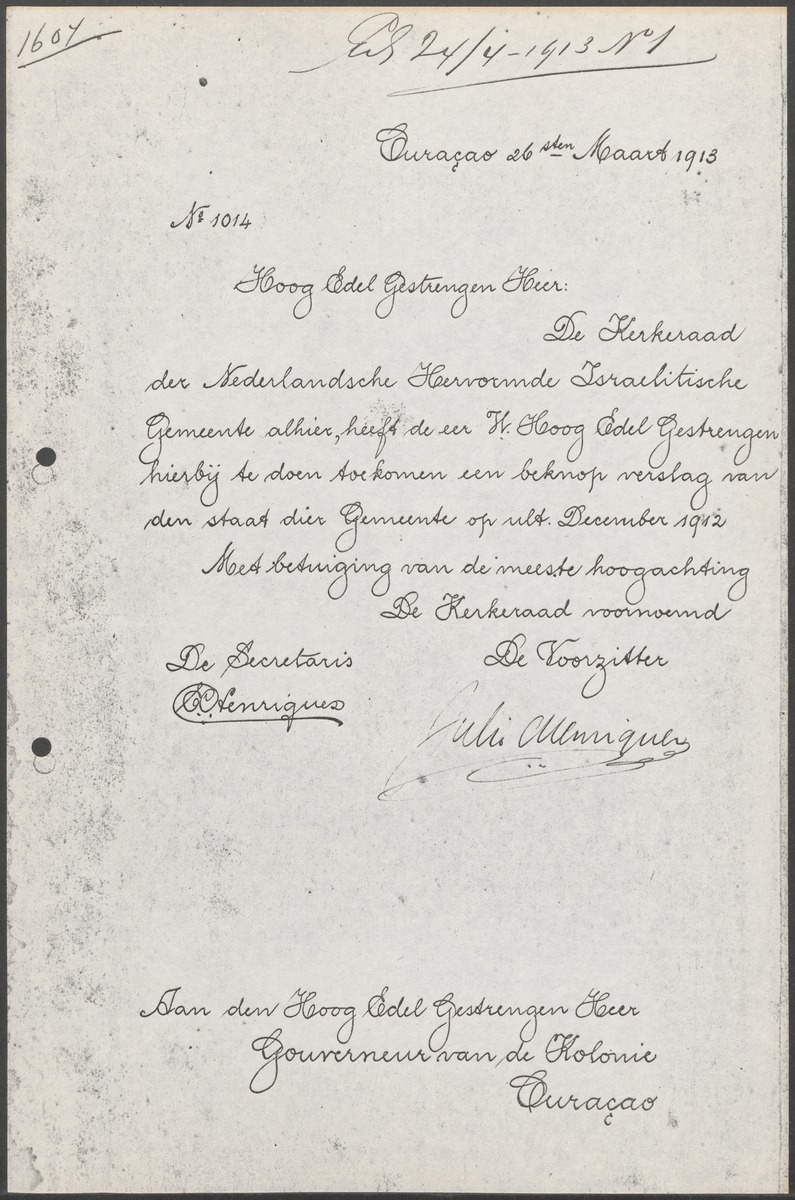 1607
24/4-1913 No 1
Curaçao 26sten Maart 1913
No 1014
Hoog Edel Gestrengen Heer:
De Kerkeraad
der Nederlandsche Hervormde Israelitische
Gemeente alhier, heeft de eer W. Hoog Edel Gestrengen
hierbij te doen toekomen een beknop verslag van
den staat dier Gemeente op ult. December 1912
Met betuiging van de meeste hoogachting
De Kerkeraad voornoemd
De Secretaris
De Voorzitter
Henriquez
Henriquez
Aan den Hoog Edel Gestrengen Heer
Gouverneur van de Kolonie
Curaçao